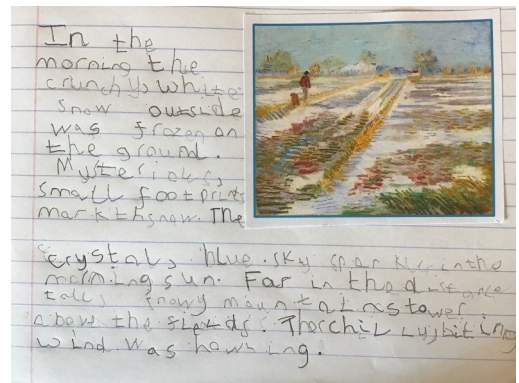 In the
morning the
crunchy, white
snow outside
was frozen on
the ground.
Mysterious,
small footprints
mark thsnow. The
crystal, blue sky sparkls inthe
morning sun. Far in the distance
tall, snowy mountains tower
above the fields. The chilly, biting
wind was howling.